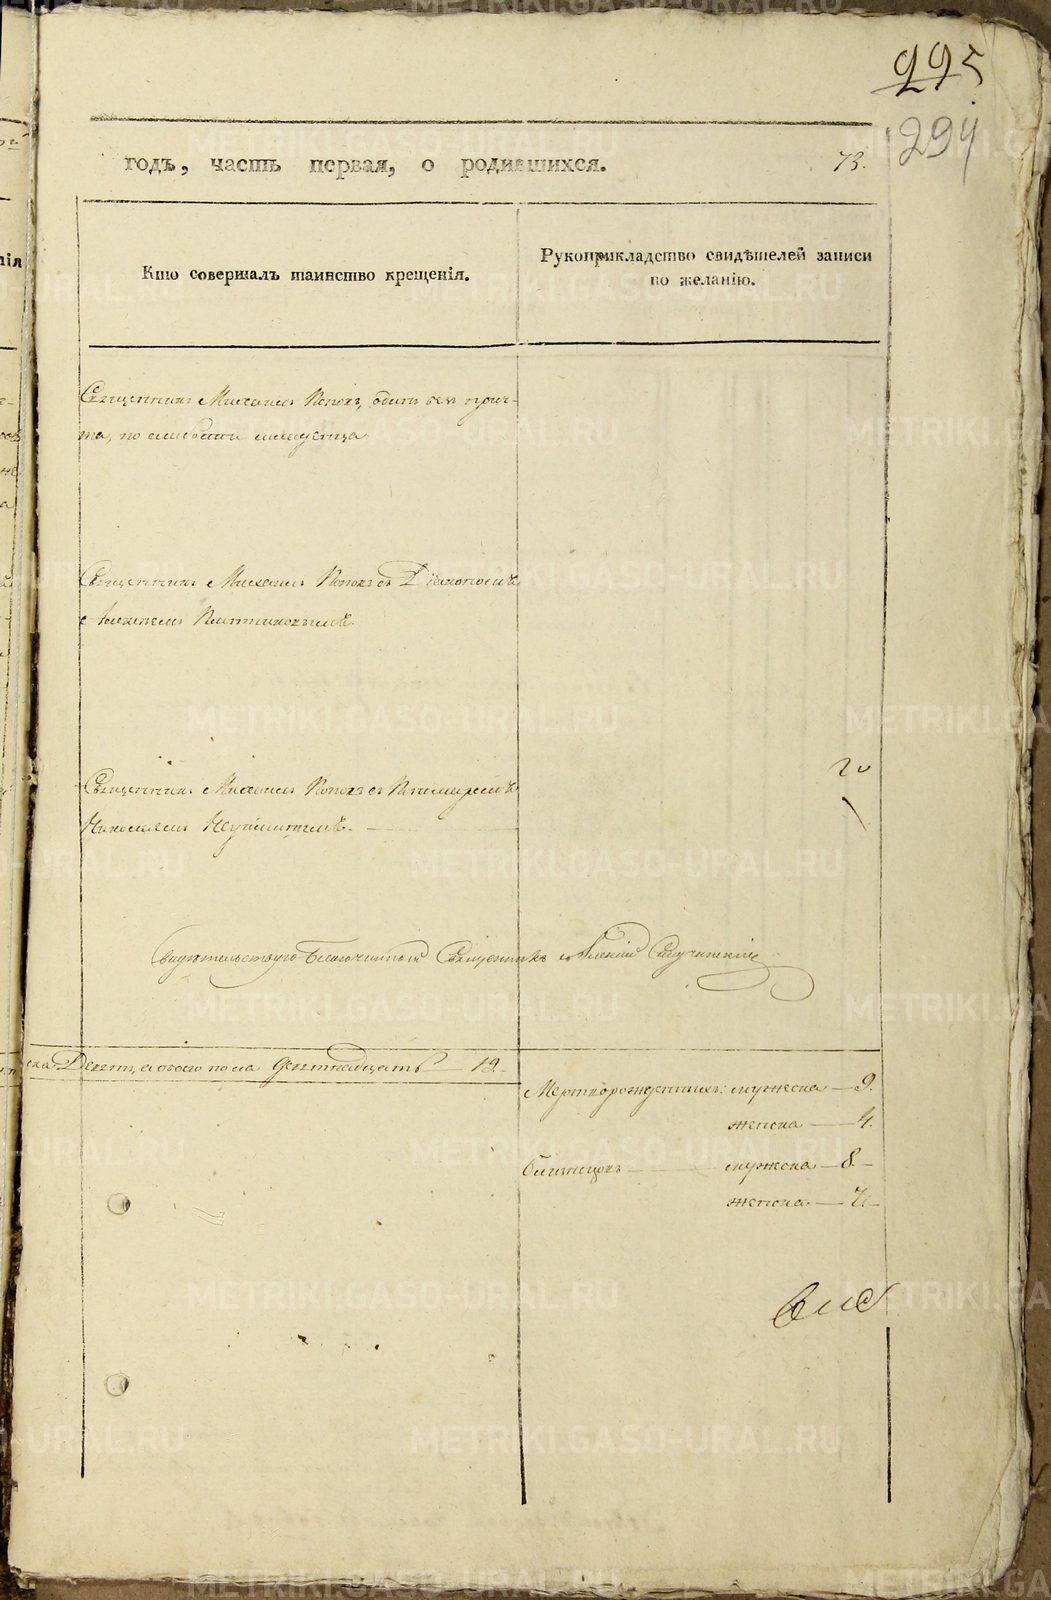 295
294
годъ, часть первая, о родившихся.
73.
Кто совершалъ таинство крещенія.
Рукоприкладство свидѣтелей записи
по желанію.
Священникъ Михаилъ Поповъ, одинъ безъ прич-
та, по слабости младенца
Священникъ Михаилъ Поповъ съ Діакономъ
Алексѣемъ
Священникъ Михаилъ Поповъ съ Пономаремъ
Николаемъ
20
Свидѣтельствую Благочинный Священникъ Алексій
Девят, а обоего пола девятнадцать 19.
Мертворожденныхъ: мужеска 9.
женска 4.
близнецовъ мужска 8
женска
METRIKI.GASO-URAL.RU